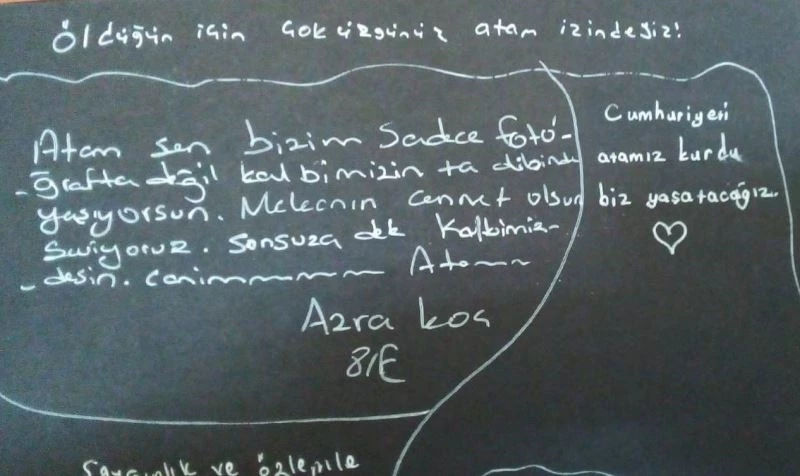 Öldüğün için çok üzgünüz atam izindeyiz!
Atam sen bizim sadece foto-
ğrafta değil kalbimizin ta dibinde
yaşıyorsun. Mekanın cennet olsun
Seviyoruz. Sonsuza dek Kalbimiz-
desin. canımmmmmm Atamm
Azra koç
8/E
Cumhuriyeti
atamız kurdu
biz yaşatacağız.
Saygınlık ve özlemle